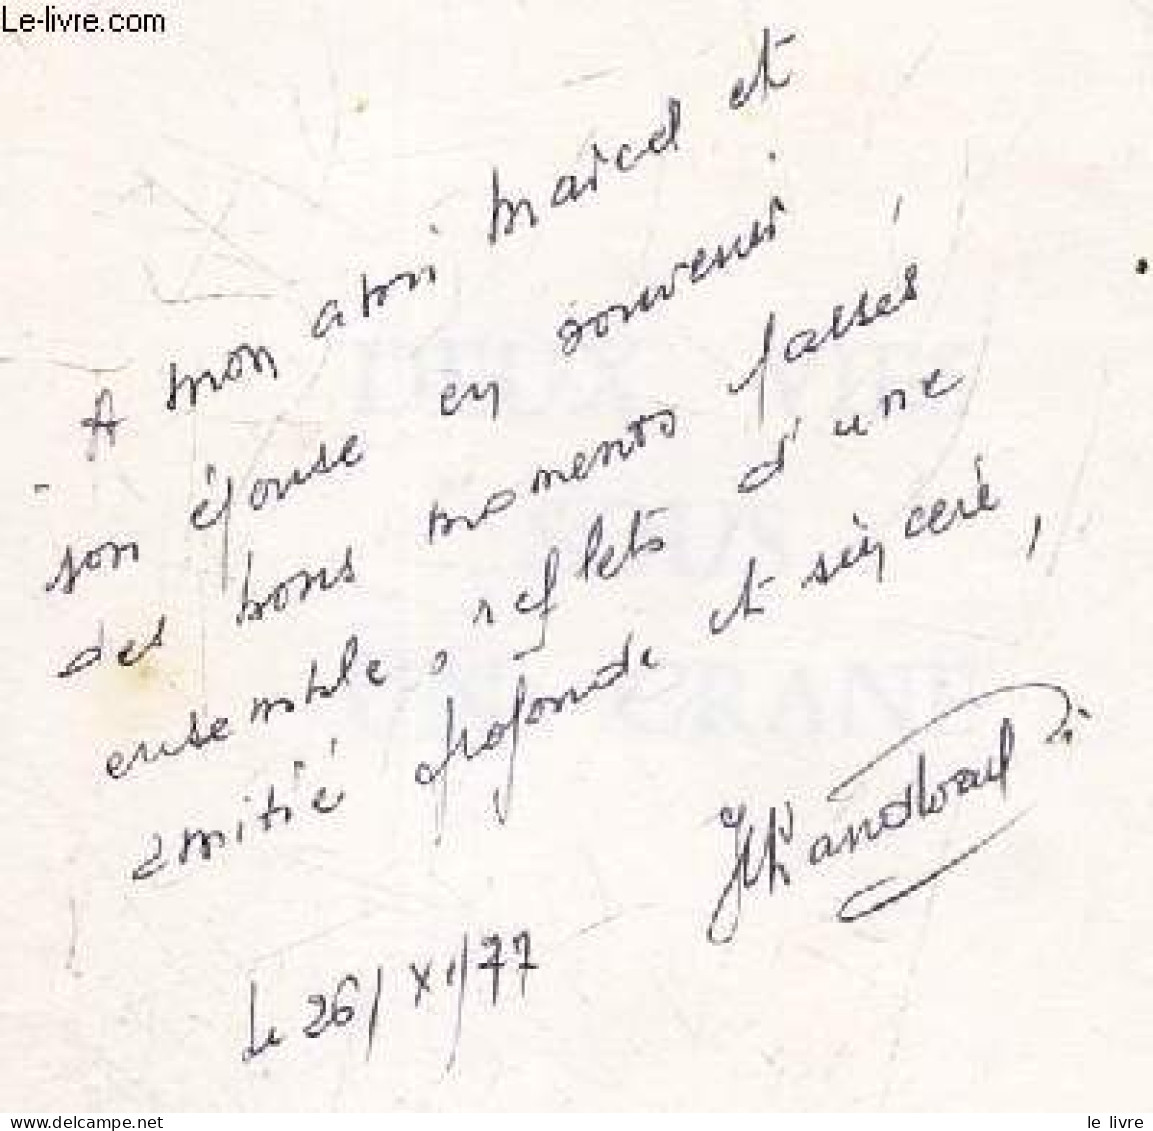 Le-livre.com
A mon ami Marcel et
son épouse en souvenir
des bons moments passés
ensemble, reflets d'une
amitié profonde et sincère,
le 26/XI/77
le livre